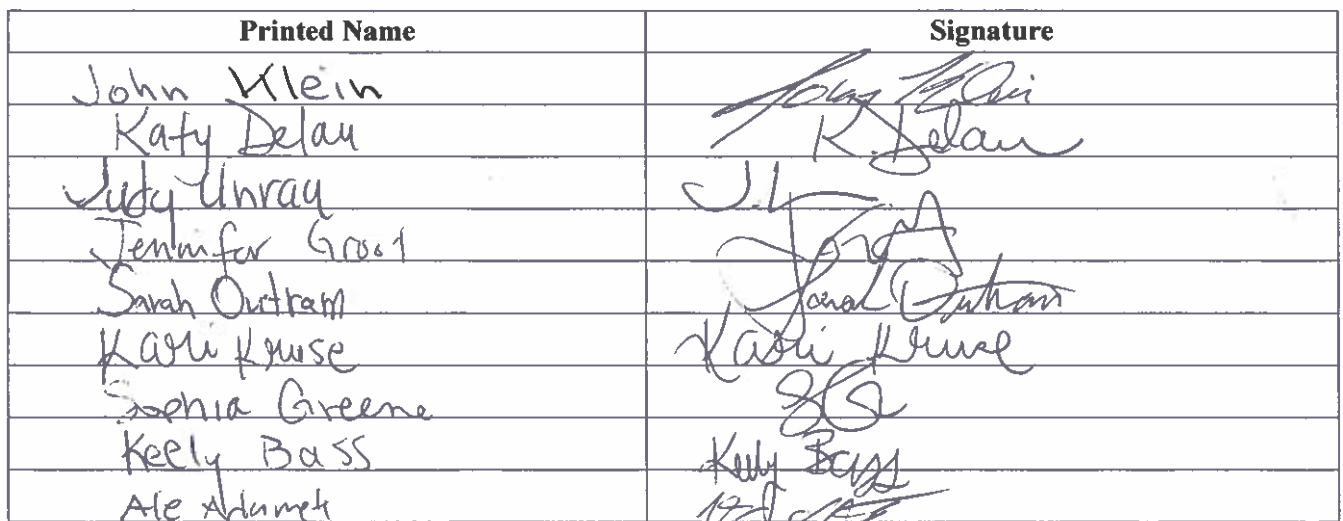 Printed Name Signature
John Klein John Klein
Katy Delau K. Delau
Judy Unrau J.
Jennifer Groot
Sarah Outram Sarah Outram
Kari Kruse Kari Kruse
Sophia Greene SG
Keely Bass Keely Bass
Ale